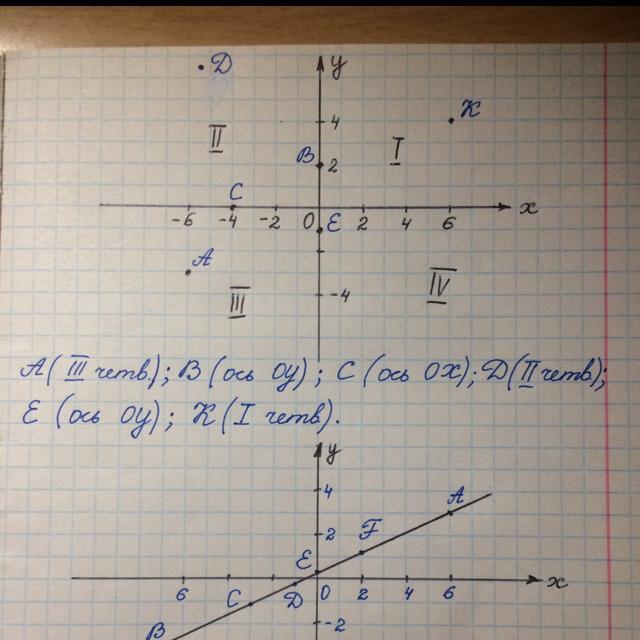 Д y
4 К
II I
В 2
С
-6 -4 -2 0 Е 2 4 6 x
А
III -4 IV
А(III четв.); В (ось Oy); С (ось OX); Д(II четв);
Е (ось Oy); К(I четв).
y
4 А
2 F
Е
6 С D 0 2 4 6 x
В -2